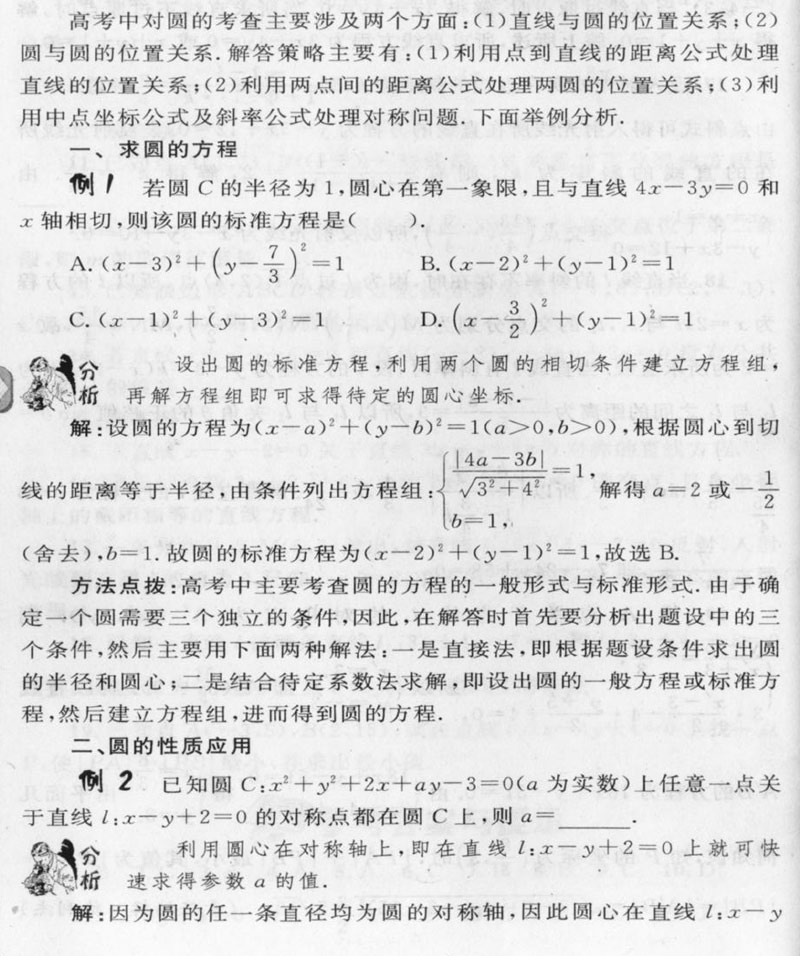 高考中对圆的考查主要涉及两个方面:(1)直线与圆的位置关系;(2)
圆与圆的位置关系.解答策略主要有:(1)利用点到直线的距离公式处理
直线的位置关系;(2)利用两点间的距离公式处理两圆的位置关系;(3)利
用中点坐标公式及斜率公式处理对称问题.下面举例分析.
一、求圆的方程
例1 若圆 C 的半径为 1,圆心在第一象限,且与直线 4x-3y=0 和
x 轴相切,则该圆的标准方程是( ).
A. (x-3)²+(y-7/3)²=1 B. (x-2)²+(y-1)²=1
C. (x-1)²+(y-3)²=1 D. (x-3/2)²+(y-1)²=1
分析 设出圆的标准方程,利用两个圆的相切条件建立方程组,
再解方程组即可求得待定的圆心坐标.
解:设圆的方程为(x-a)²+(y-b)²=1(a>0,b>0),根据圆心到切
线的距离等于半径,由条件列出方程组:{|4a-3b|/√(3²+4²)=1, b=1, 解得 a=2 或-1/2
(舍去),b=1.故圆的标准方程为(x-2)²+(y-1)²=1,故选 B.
方法点拨:高考中主要考查圆的方程的一般形式与标准形式.由于确
定一个圆需要三个独立的条件,因此,在解答时首先要分析出题设中的三
个条件,然后主要用下面两种解法:一是直接法,即根据题设条件求出圆
的半径和圆心;二是结合待定系数法求解,即设出圆的一般方程或标准方
程,然后建立方程组,进而得到圆的方程.
二、圆的性质应用
例2 已知圆 C:x²+y²+2x+ay-3=0(a 为实数)上任意一点关
于直线 l:x-y+2=0 的对称点都在圆 C 上,则 a=______.
分析 利用圆心在对称轴上,即在直线 l:x-y+2=0 上就可快
速求得参数 a 的值.
解:因为圆的任一条直径均为圆的对称轴,因此圆心在直线 l:x-y